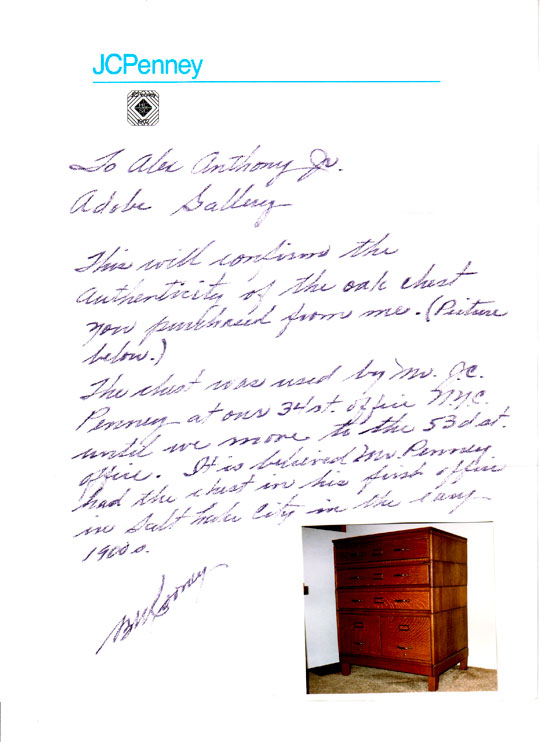 JCPenney
To Alex Anthony Jr.
Adobe Gallery
This will confirm the
authenticity of the oak chest
you purchased from me. (Picture
below.)
The chest was used by Mr. J.C.
Penney at our 34 st. office N.Y.C.
until we move to the 53d st.
office. It is believed Mr. Penney
had the chest in his first office
in Salt Lake City in the easy
1900s.
Rooney